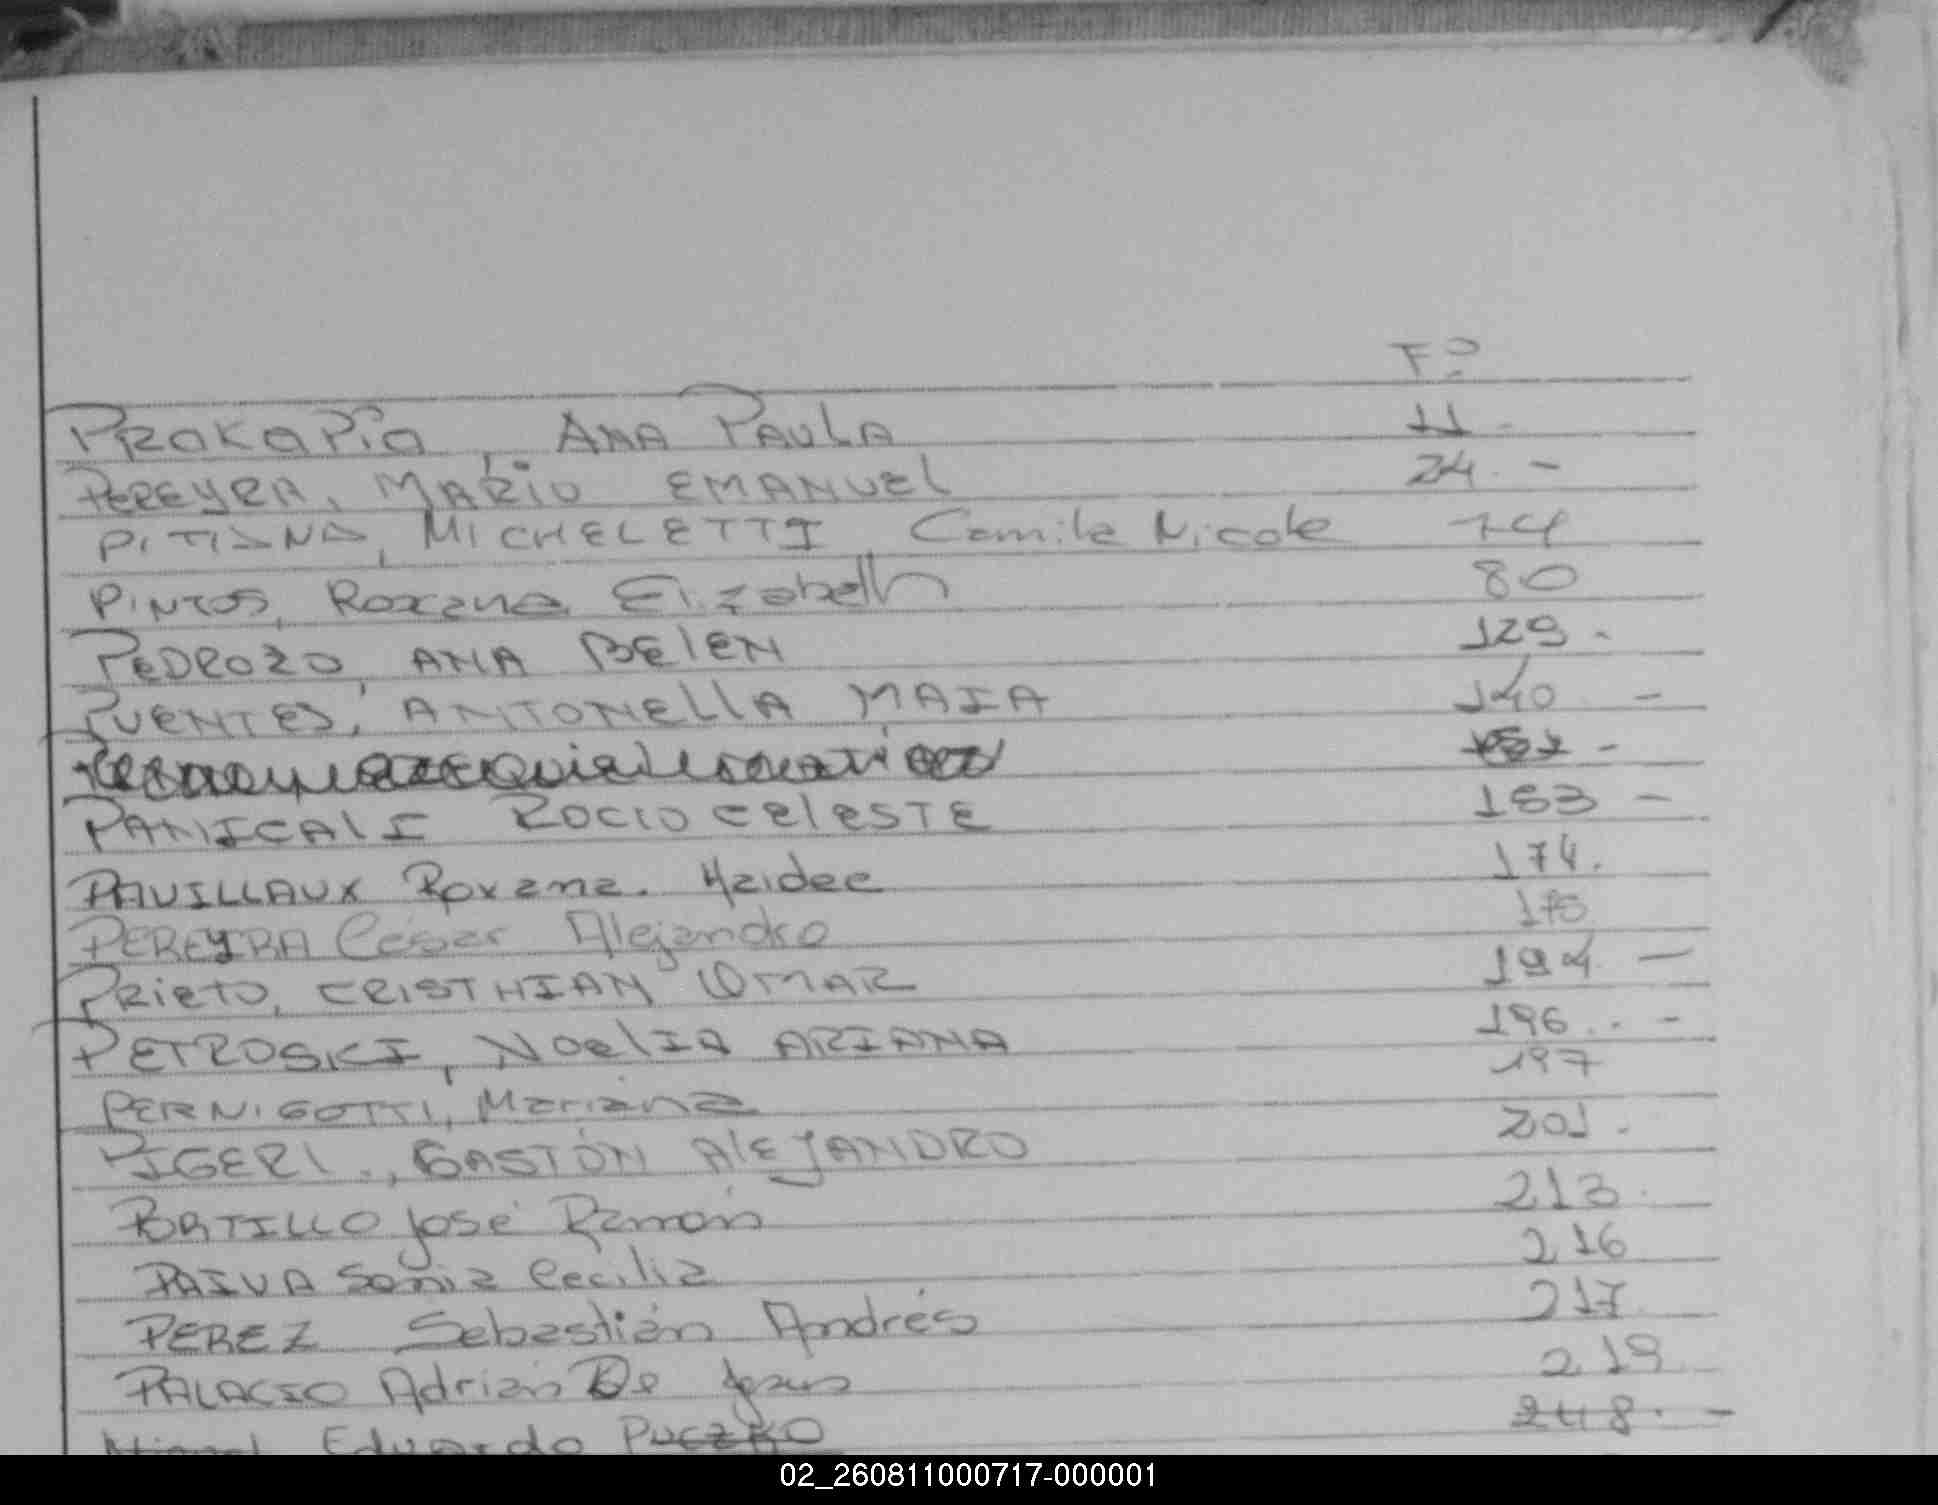 Fº
PROKAPIO, ANA PAULA 11.
PEREYRA, MARIO EMANUEL 24. -
PITIANA, MICHELETTI, Camila Nicole 74
PINTOS, Roxana Elizabeth 80
PEDROZO, ANA BELEN 129.
PUENTES, ANTONELLA MAIA 140. -
PANICALI ROCIO CELESTE 153 -
PAVILLAUX Roxana. Haidee 174.
PEREYRA César Alejandro 175
PRIETO, CRISTHIAN OMAR 194. -
PETROSKI, NOELIA ARIANA 196. . -
PERNIGOTTI, Mariana 197
PIGERL., GASTÓN ALEJANDRO 201.
PORTILLO José Ramón 213.
PAIVA Sonia Cecilia 216
PEREZ Sebastián Andrés 217.
PALACIO Adrián De Jesus 219
Miguel Eduardo PUCZKO 248. -
02_260811000717-000001